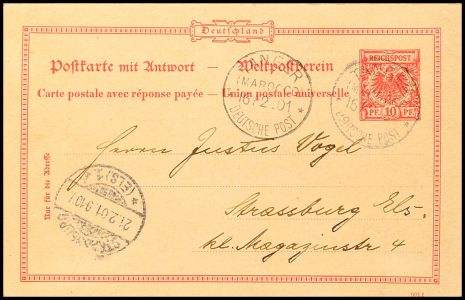 Deutschland
Postkarte mit Antwort — Weltpostverein
Carte postale avec réponse payée — Union postale universelle
REICHSPOST
10 PF. 10 PF.
TANGER
(MAROCCO)
16.2.01
DEUTSCHE POST
Herrn Justus Vogel
Strassburg Els.
kl. Magazinstr 4
Nur für die Adresse
(ELS) 1
21.2.01.9-10V